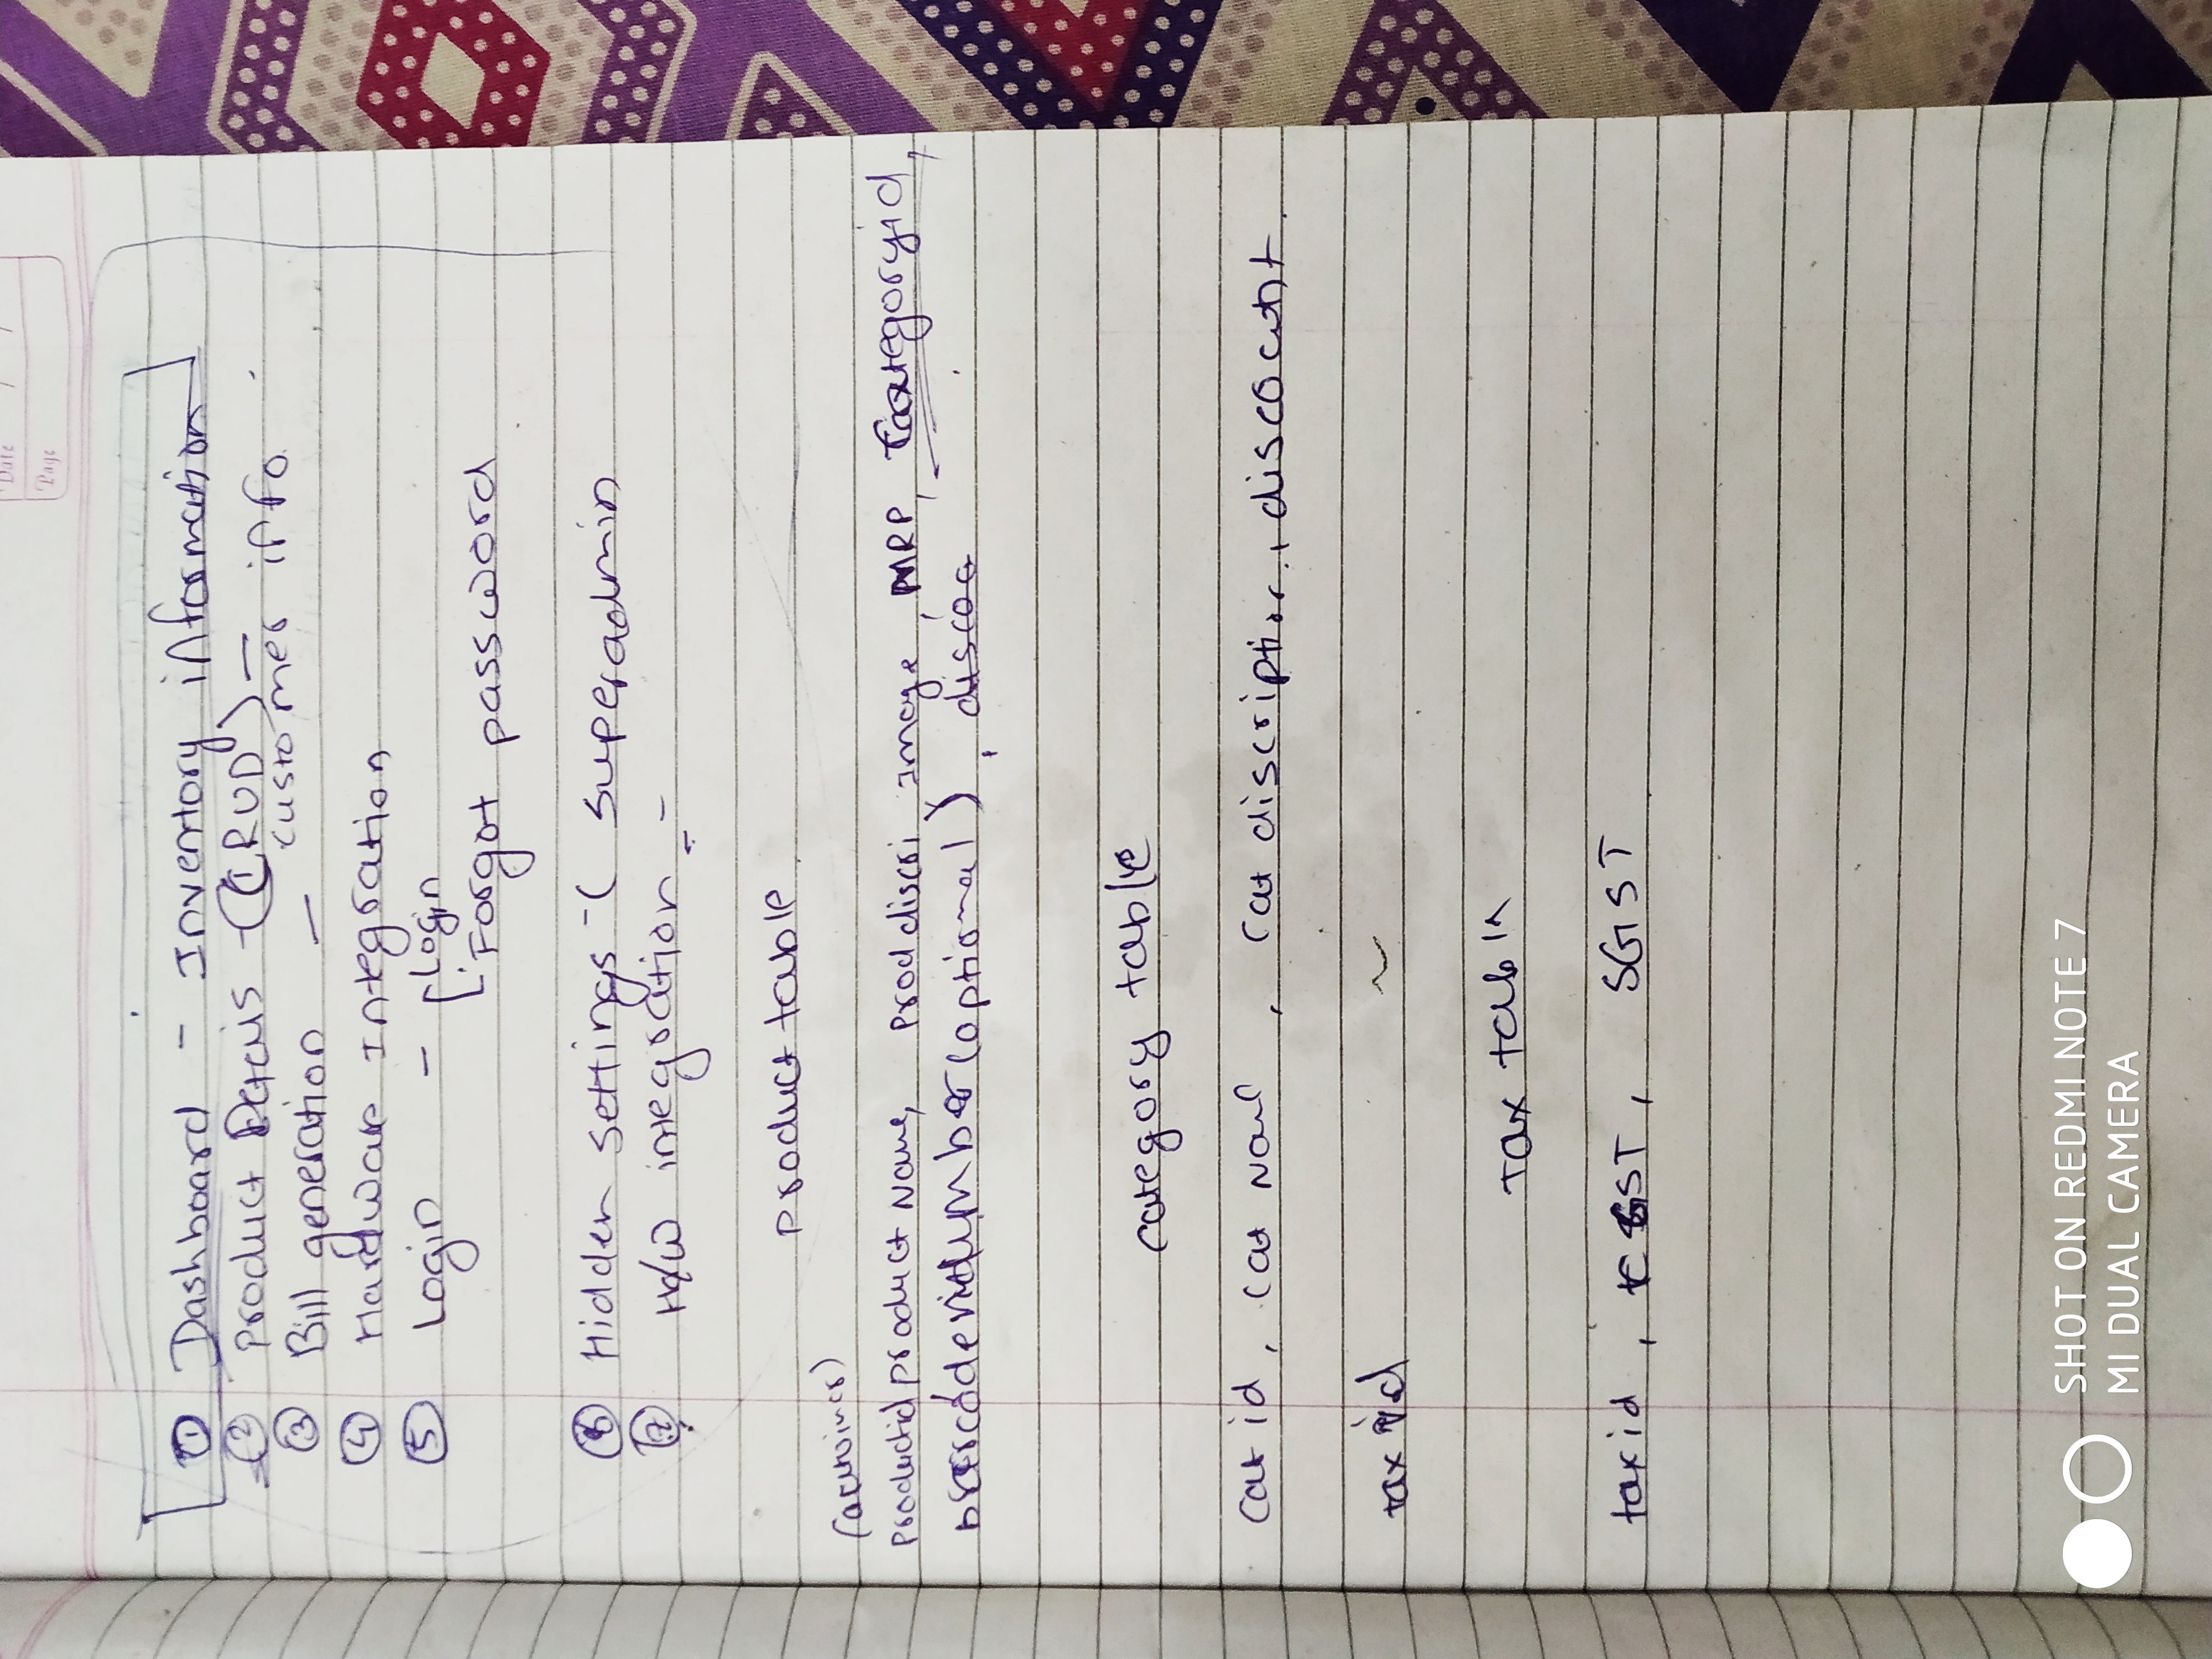 Date / /
Page
① Dashboard - Inventory information
② Product Details - (CRUD) -
customer info.
③ Bill generation -
④ Hardware Integration
⑤ Login - Login
Forgot password
⑥ Hidden settings - ( superadmin
⑦ H/W integration -
product table
productid, product Name, Prod discri, Image, MRP, Categoryid,
barcode number (optional), discou
category table
cat id, cat Name, cat discription, discount.
tax id
Tax table
tax id, CGST, SGST
SHOT ON REDMI NOTE 7
MI DUAL CAMERA